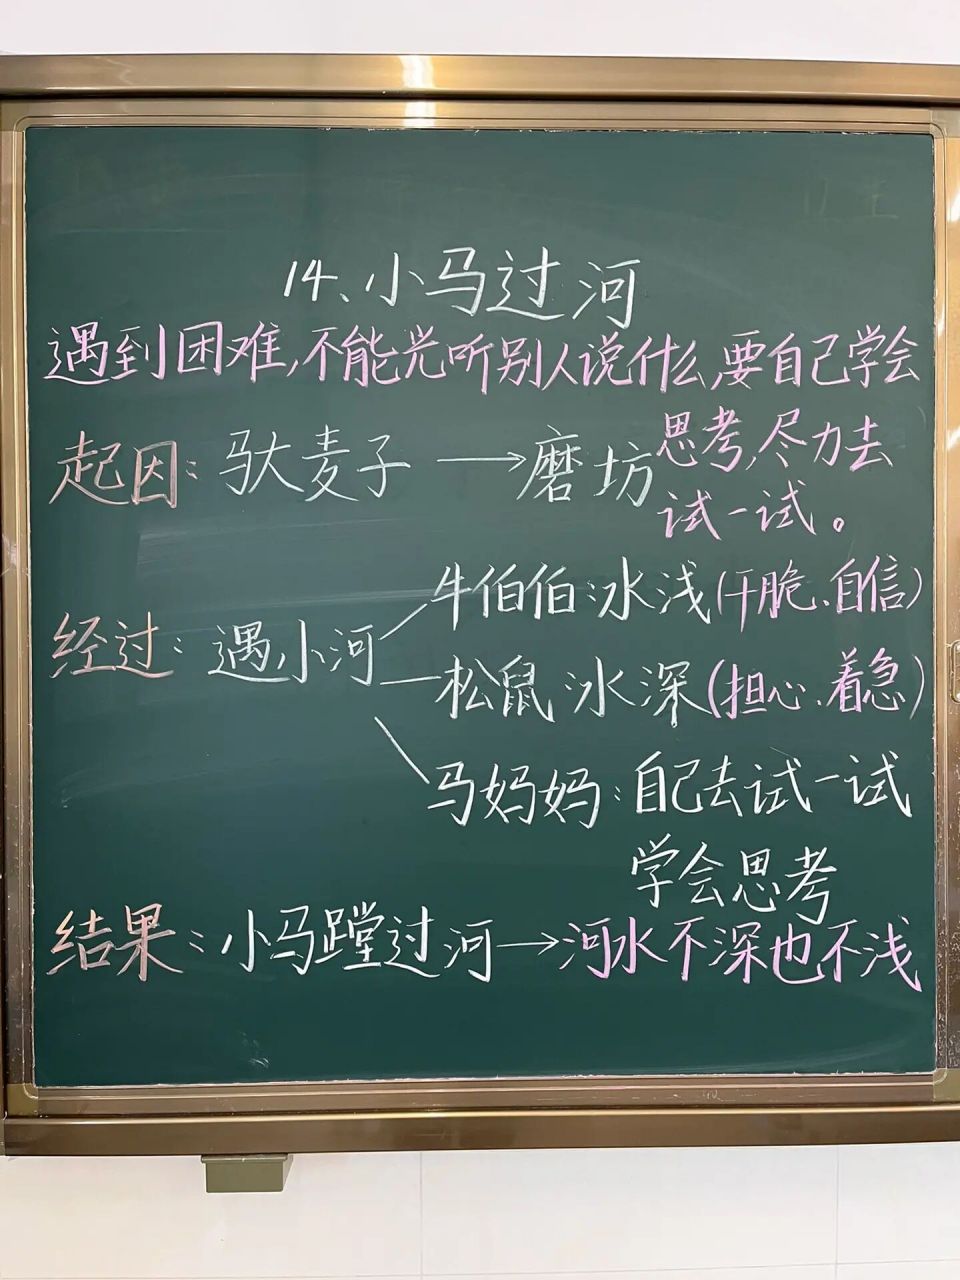 14、小马过河
遇到困难,不能光听别人说什么,要自己学会
思考,尽力去
试一试。
起因:驮麦子→磨坊
经过:遇小河
牛伯伯:水浅(干脆、自信)
松鼠:水深(担心、着急)
马妈妈:自己去试一试
学会思考
结果:小马蹚过河→河水不深也不浅